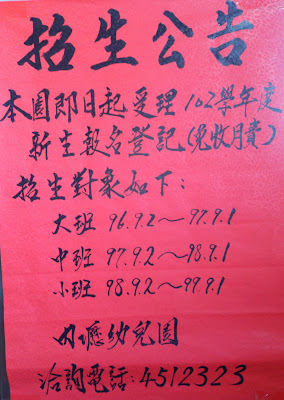 招生公告
本園即日起受理102學年度
新生報名登記(免收月費)
招生對象如下:
大班 96.9.2~97.9.1
中班 97.9.2~98.9.1
小班 98.9.2~99.9.1
內壢幼兒園
洽詢電話:4512323